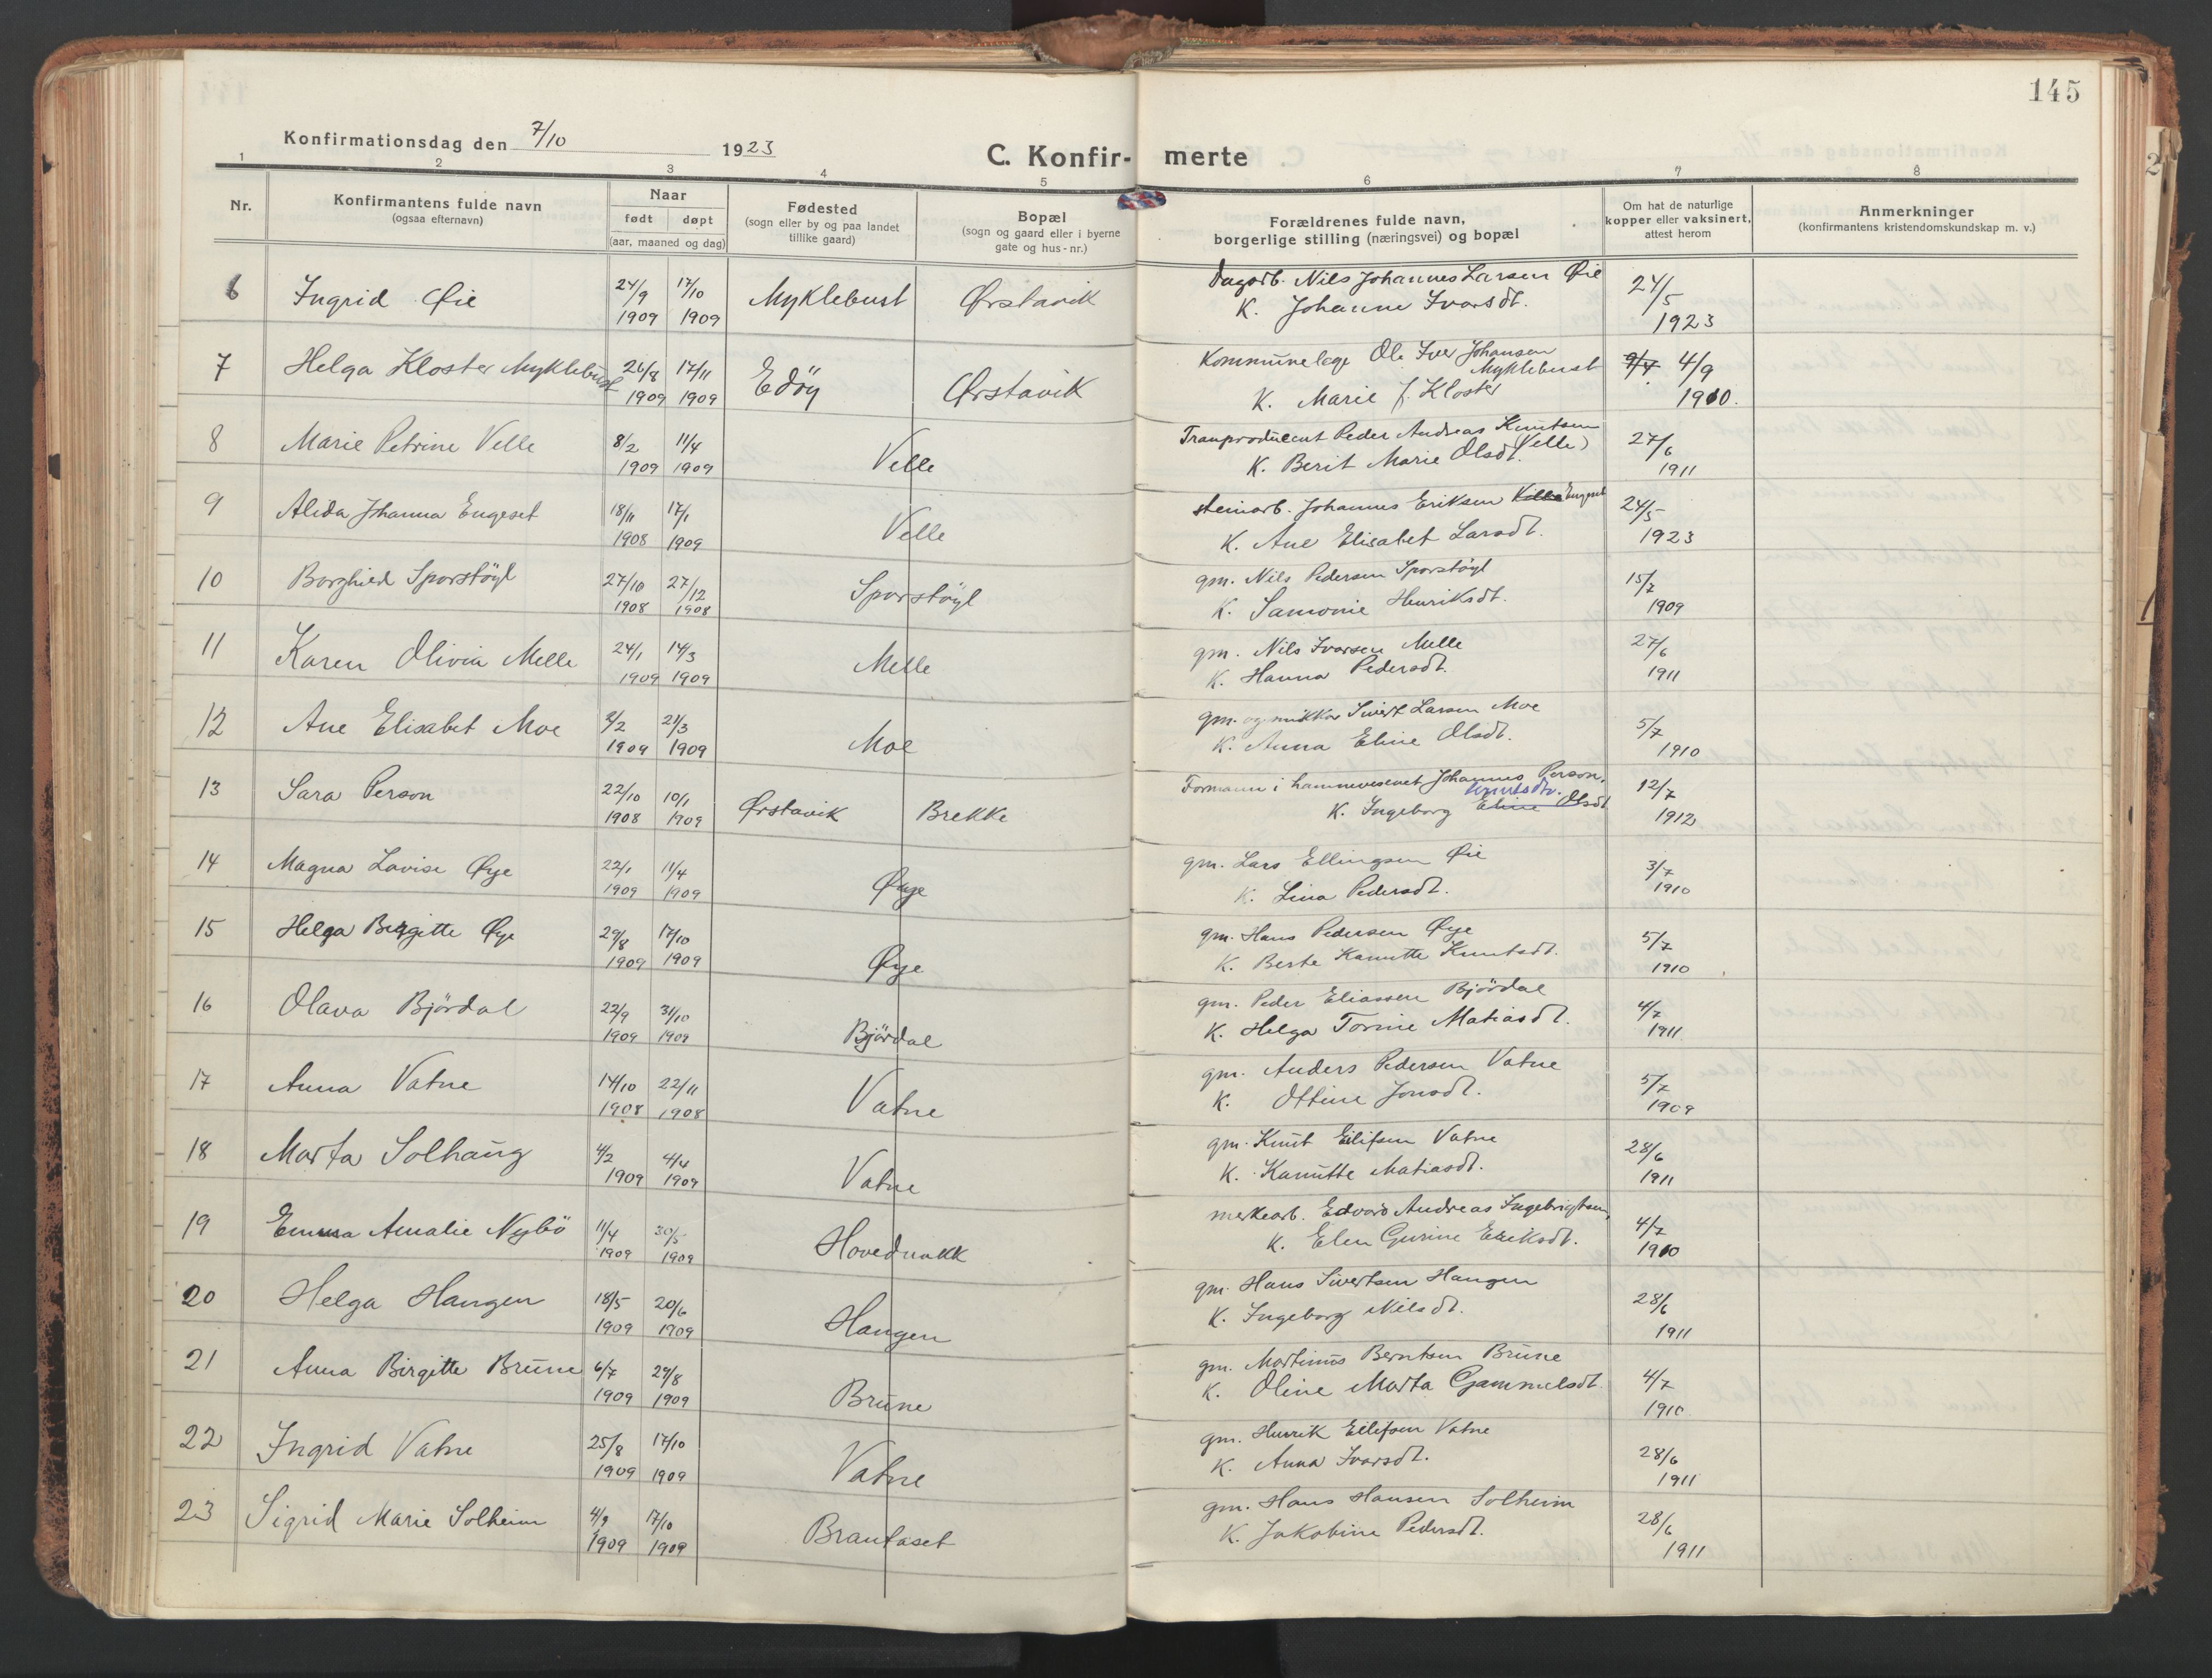 145
Konfirmationsdag den 7/10 1923
C. Konfir- merte
1 2 3 4 5 6 7 8
Nr.
Konfirmantens fulde navn
(ogsaa efternavn)
Naar
født døpt
(aar, maaned og dag)
Fødested
(sogn eller by og paa landet
tillike gaard)
Bopæl
(sogn og gaard eller i byerne
gate og hus-nr.)
Forældrenes fulde navn,
borgerlige stilling (næringsvei) og bopæl
Om hat de naturlige
kopper eller vaksinert,
attest herom
Anmerkninger
(konfirmantens kristendomskundskap m. v.)
6 Ingrid Øie 24/9 1909 17/10 1909 Myklebust Ørstavik
Dagarb. Nils Johannes Larsen Øie
K. Johanne Ivarsdt.
24/5 1923
7 Helga Kloster Myklebust 26/8 1909 17/11 1909 Edöy Ørstavik
Kommunelæge Ole Iver Johansen
Myklebust
K. Marie f. Kloster
9/7 4/9 1910.
8 Marie Petrine Velle 8/2 1909 11/4 1909 Velle
Tranproducent Peder Andreas Knutsen
Velle
K. Berit Marie Olsdt.
27/6 1911
9 Alida Johanna Engeset 18/11 1908 17/1 1909 Velle
steinarb. Johannes Eriksen Velle Engeset
K. Ane Elisabet Larsdt.
24/5 1923
10 Borghild Sporstöyl 27/10 1908 27/12 1908 Sporstöyl
gm. Nils Pedersen Sporstöyl
K. Samonie Henriksdt.
15/7 1909
11 Karen Olivia Melle 24/1 1909 14/3 1909 Melle
gm. Nils Ivarsen Melle
K. Hanna Pedersdt.
27/6 1911
12 Ane Elisabet Moe 2/2 1909 21/3 1909 Moe
gm. og snikkar Sivert Larsen Moe
K. Anna Eline Olsdt.
5/7 1910
13 Sara Person 22/10 1908 10/1 1909 Ørstavik Brekke
Formann i havnevesenet Johannes Person.
Knutsdtr.
K. Ingeborg Eline Olsdt
12/7 1912
14 Magna Lovise Øye 22/1 1909 11/4 1909 Øye
gm. Lars Ellingsen Øie
K. Lina Pedersdt.
3/7 1910
15 Helga Birgitte Øye 29/8 1909 17/10 1909 Øye
gm. Hans Pedersen Øye
K. Berte Kanutte Knutsdt.
5/7 1910
16 Olava Björdal 22/9 1909 31/10 1909 Björdal
gm. Peder Eliassen Björdal
K. Helga Torine Matiasdt.
4/7 1911
17 Anna Vatne 14/10 1908 22/11 1908 Vatne
gm. Anders Pedersen Vatne
K. Ottine Jonsdt.
5/7 1909
18 Marta Solhaug 4/2 1909 4/4 1909 Vatne
gm. Knut Eilifsen Vatne
K. Kanutte Matiasdt.
28/6 1911
19 Emma Amalie Nybö 11/4 1909 30/5 1909 Hovednakk
merkearb. Edvard Andreas Ingebrigtsen,
K. Elen Gurine Eriksdt.
4/7 1910
20 Helga Haugen 18/5 1909 20/6 1909 Haugen
gm. Hans Sivertsen Haugen
K. Ingeborg Nilsdt.
28/6 1911
21 Anna Birgitte Brune 6/7 1909 29/8 1909 Brune
gm. Martinus Berntsen Brune
K. Oline Marta Gammelsdt.
4/7 1910
22 Ingrid Vatne 25/8 1909 17/10 1909 Vatne
gm. Henrik Eilifsen Vatne
K. Anna Ivarsdt.
28/6 1911
23 Sigrid Marie Solheim 4/9 1909 17/10 1909 Brautaset
gm. Hans Hansen Solheim
K. Jakobine Pedersdt.
28/6 1911